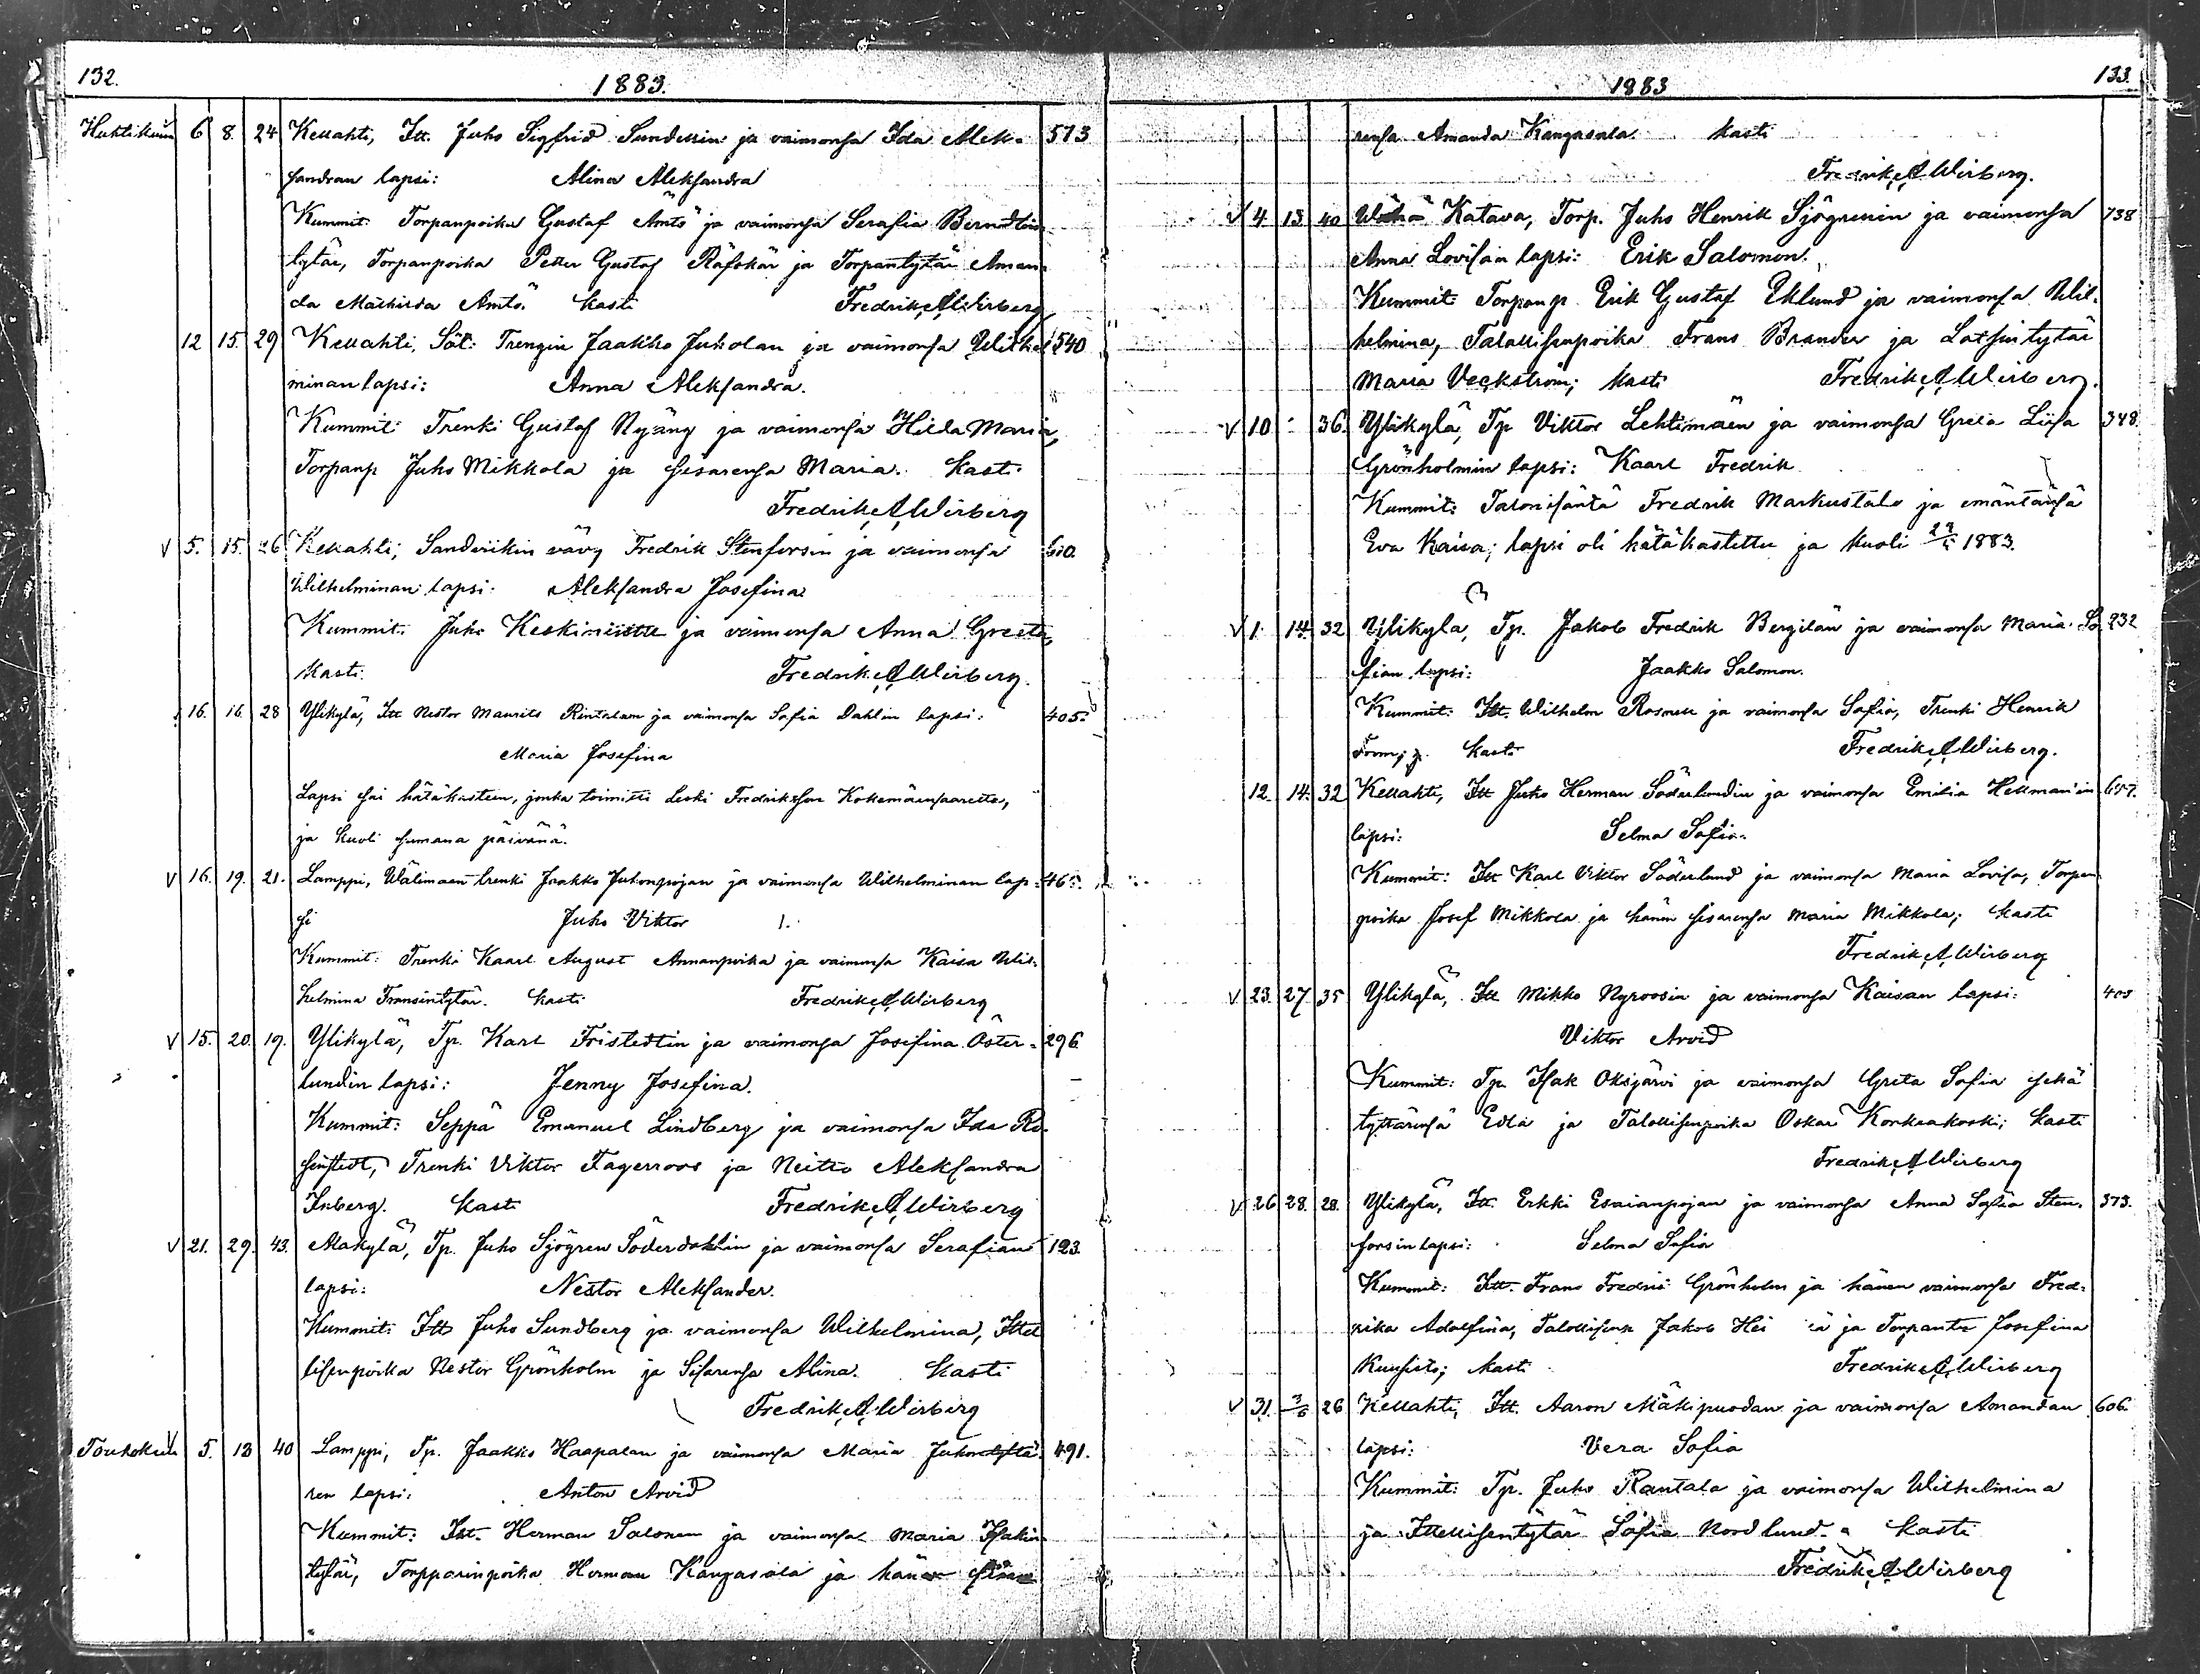 132.
1883.
Huhtikuun 6 8. 24 Kellahti, Itt. Juho Sigfrid Sundellin ja vaimonsa Ida Alek- 573
sandran lapsi: Alina Aleksandra
Kummit: Torpanpoika Gustaf Amtö ja vaimonsa Serafia
tytär, Torpanpoika Petter Gustaf Räfskär ja Torpantytär Aman-
da Mathilda Amtö. kasti Fredrik A Wirberg
12 15. 29 Kellahti, Söt: Trengin Jaakko Juholan ja vaimonsa Wilhel- 540
minan lapsi: Anna Aleksandra.
Kummit: Trenki Gustaf Nyäng ja vaimonsa Hilda Maria,
Torpanp Juho Mikkola ja sisarensa Maria. kasti
Fredrik A Wirberg
V 5. 15. 26 Kellahti, Sanderikin vävy Fredrik Stenforsin ja vaimonsa 610.
Wilhelminan lapsi: Aleksandra Josefina
Kummit: Juho Keskiniitte ja vaimonsa Anna Greeta,
kasti. Fredrik A Wirberg.
16. 16. 28 Ylikylä, Itt Nestor Maurits Rintalan ja vaimonsa Sofia Dahlin lapsi: 405.
Maria Josefina
Lapsi sai hätäkasteen, jonka toimitti Leski Fredriksson Kokemäensaarelta,
ja kuoli samana päivänä.
V 16. 19. 21. Lamppi, Wälimaen trenki Jaakko Juhonpojan ja vaimonsa Wilhelminan lap- 46
si Juho Viktor
Kummit: Trenki Kaarl August Annanpoika ja vaimonsa Kaisa Wil-
helmina Fransintytär. kasti Fredrik A Wirberg
V 15. 20. 19. Ylikylä, Tp. Karl Fristedtin ja vaimonsa Josefina Öster- 296
lundin lapsi: Jenny Josefina.
Kummit: Seppä Emanuel Lindberg ja vaimonsa Ida Ro-
senstedt, Trenki Viktor Fagerroos ja Neitio Aleksandra
Inberg. kasti Fredrik A Wirberg
V 21. 29. 43. Alakylä, Tp. Juho Sjögren Söderdahlin ja vaimonsa Serafian 123.
lapsi: Nestor Aleksander.
Kummit: Itt Juho Sundberg ja vaimonsa Wilhelmina, Ittel
lisenpoika Nestor Grönholm ja Sisarensa Alina. kasti
Fredrik A Wirberg
Toukokuu V 5. 13 40 Lamppi, Tp. Jaakko Haapalan ja vaimonsa Maria Juhontyttä- 491.
ren lapsi: Anton Arvid
Kummit: Itt. Herman Salonen ja vaimonsa Maria Isakin
tytär, Torpparinpoika Herman Kangasala ja hänen
133.
1883
rensa Amanda Kangasala. kasti
Fredrik A Wirberg.
V 4 13 40 Wähä Katava, Torp. Juho Henrik Sjögrenin ja vaimonsa 738
Anna Lovisan lapsi: Erik Salomon.
Kummit: Torpanp. Erik Gustaf Eklund ja vaimonsa Wil-
helmina, Talollisenpoika Frans Brander ja Lotsintytär
Maria Veckström; kasti Fredrik A Wirberg.
V 10 36. Ylikylä, Tp Viktor Lehtimäen ja vaimonsa Greta Liisa 348
Grönholmin lapsi: Kaarl Fredrik
Kummit: Talonisäntä Fredrik Markustalo ja emäntänsä
Eva Kaisa; lapsi oli hätäkastettu ja kuoli 1883.
V 1. 14. 32 Ylikylä, Tp. Jakob Fredrik Bergilän ja vaimonsa Maria So- 232
fian lapsi: Jaakko Salomon.
Kummit: Itt. Wilhelm Rosnell ja vaimonsa Sofia, Trenki Henrik
kasti Fredrik A Wirberg.
12. 14. 32 Kellahti, Itt Juho Herman Söderlundin ja vaimonsa Emilia Hellman'in 657.
lapsi: Selma Sofia.
Kummit: Itt Karl Viktor Söderlund ja vaimonsa Maria Lovisa, Torpan
poika Josef Mikkola ja hänen sisarensa Maria Mikkola; kasti
Fredrik A Wirberg
V 23. 27. 35 Ylikylä, Itt Mikko Nyroosin ja vaimonsa Kaisan lapsi: 403
Viktor Arvid
Kummit: Tp. Isak Oksjärvi ja vaimonsa Greta Sofia sekä
tyttärensä Edla ja Talollisenpoika Oskar Korkeakoski; kasti
Fredrik A Wirberg
V 26 28. 28. Ylikylä, Itt. Erkki Esaianpojan ja vaimonsa Anna Sofia Sten- 373.
forsin lapsi: Selma Sofia
Kummit: Itt. Frans Fredrik Grönholm ja hänen vaimonsa Fred-
rika Adolfina, Talollisenp Jakob ja Torpantr Josefina
Kuusisto; kasti Fredrik A Wirberg
V 31. 3/6 26 Kellahti, Itt. Aaron Mäkipuodan ja vaimonsa Amandan 606.
lapsi: Vera Sofia
Kummit: Tp. Juho Rantala ja vaimonsa Wilhelmina
ja Ittellisentytär Sofia Nordlund. kasti
Fredrik A Wirberg